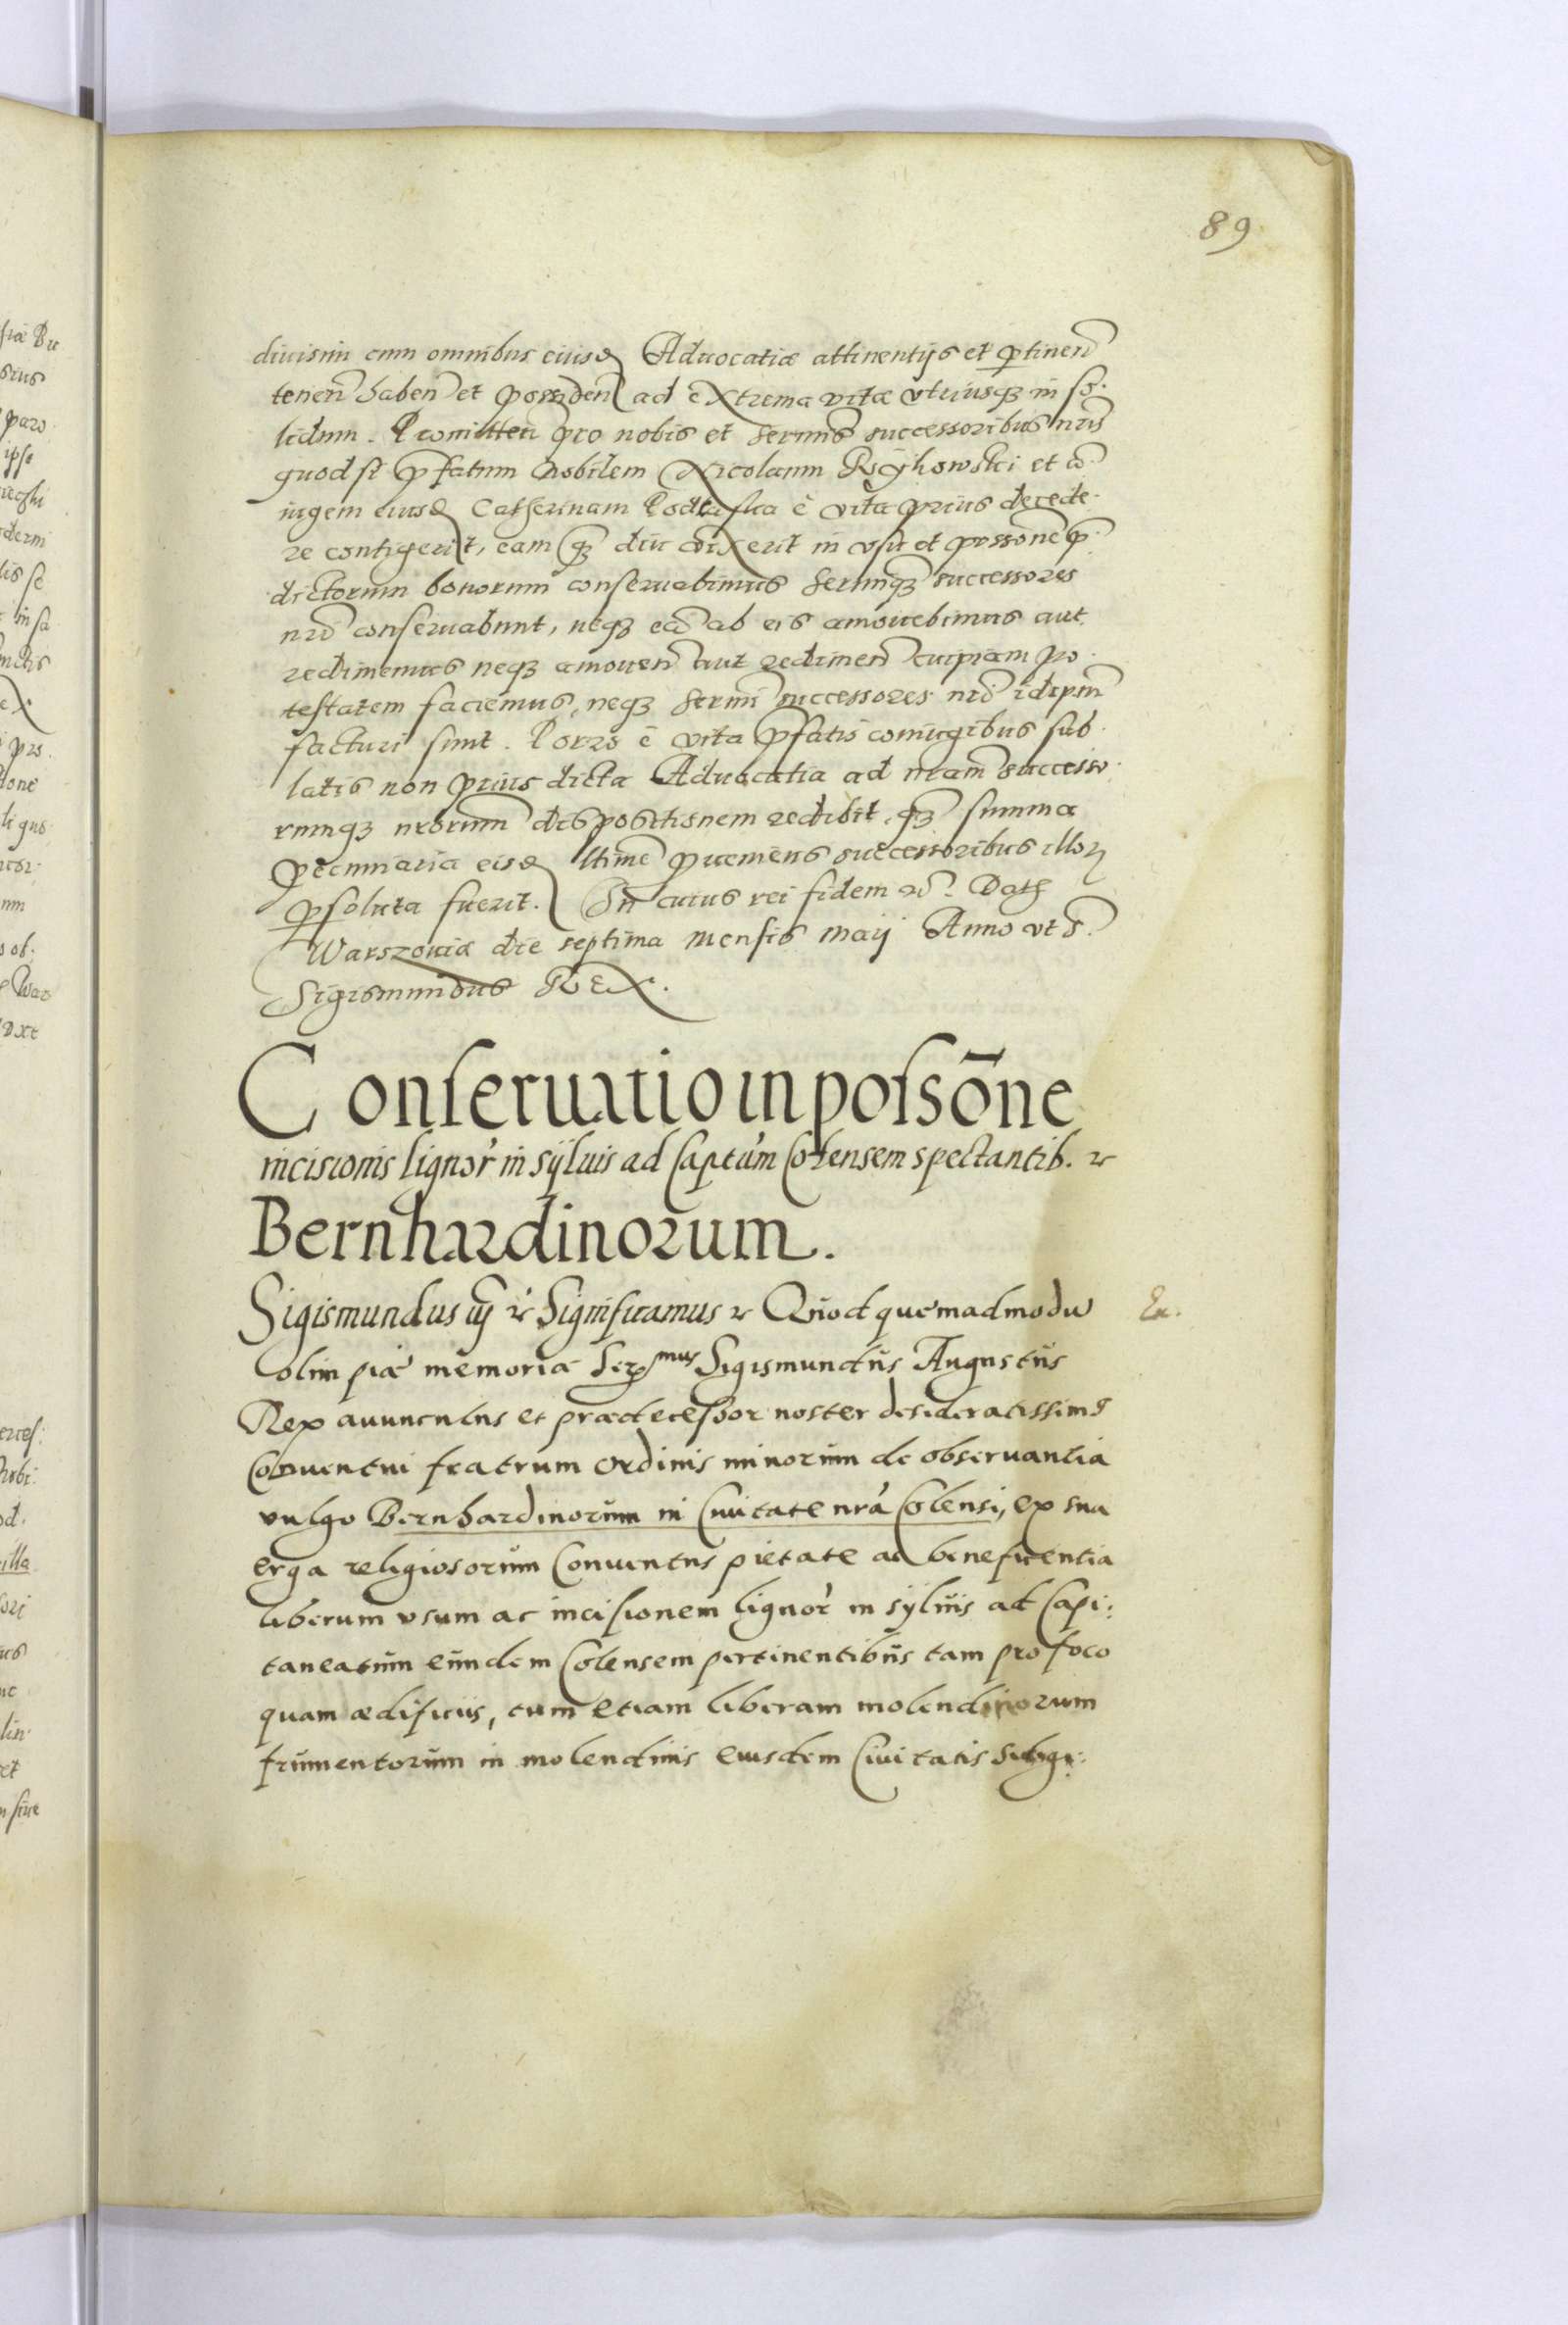 89
diuisim cum omnibus eiusd Aduocatiæ attinentijs et ptinen
tenen haben et possiden ad extrema vitæ vtriusq3 in so-
lidum. Promitten pro nobis et sermis successoribus nris
quod si pfatum Nobilem Nicolaum et co-
iugem eiusd Catherinam e vita prius decede-
re contigerit, eam q3 diu vixerit in vsu et possone p-
dictorum bonorum conseruabimus sermiq3 successores
nri conseruabunt, neq3 eã ab eis amouebimus aut
redimemus neq3 amouen aut redimen cuipiam po-
testatem faciemus, neq3 sermi successores nri idipm
facturi sunt. Porro è vita pfatis coniugibus sub-
latis non prius dicta Aduocatia ad nram successo-
rumq3 nrorum dispositionem redibit, q3 summa
pecuniaria eisd ltime successoribus illor
psoluta fuerit. In cuius rei fidem rc. Dat
Warszouiæ die septima mensis Maij Anno vt s.
Sigismundus REX.
Conseruatio in possõne
incisionis lignor in syluis ad Captum Colensem spectantib. rc
Bernhardinorum.
Sigismundus iij rc Significamus rc Quod quemadmodu Ex.
olim piæ memoriæ Ser mus Sigismundus Augustus
Rex auunculus et prædecessor noster desideratissimus
Conuentui fratrum Ordinis minorum de obseruantia
vulgo Bernhardinorum in Ciuitate nra Colensi, ex sua
erga religiosorum Conuentus pietate ac beneficentia
liberum vsum ac incisionem lignor in syluis ad Capi:
taneatum eundem Colensem pertinentibus tam pro foco
quam ædificiis, tum etiam liberam molendinorum
frumentorum in molendinis eiusdem Ciuitatis